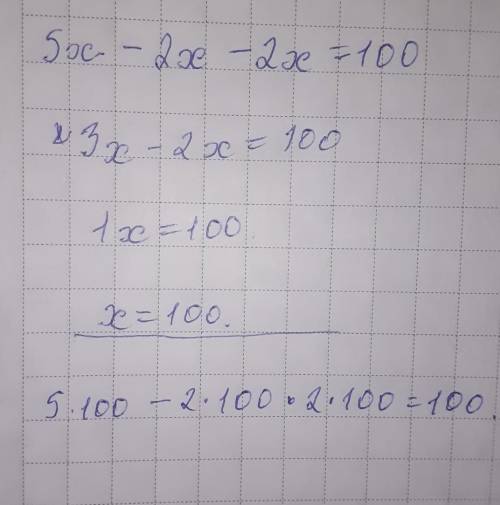 5x - 2x - 2x = 100
3x - 2x = 100
1x = 100
x = 100.
5·100 - 2·100 · 2·100 = 100.